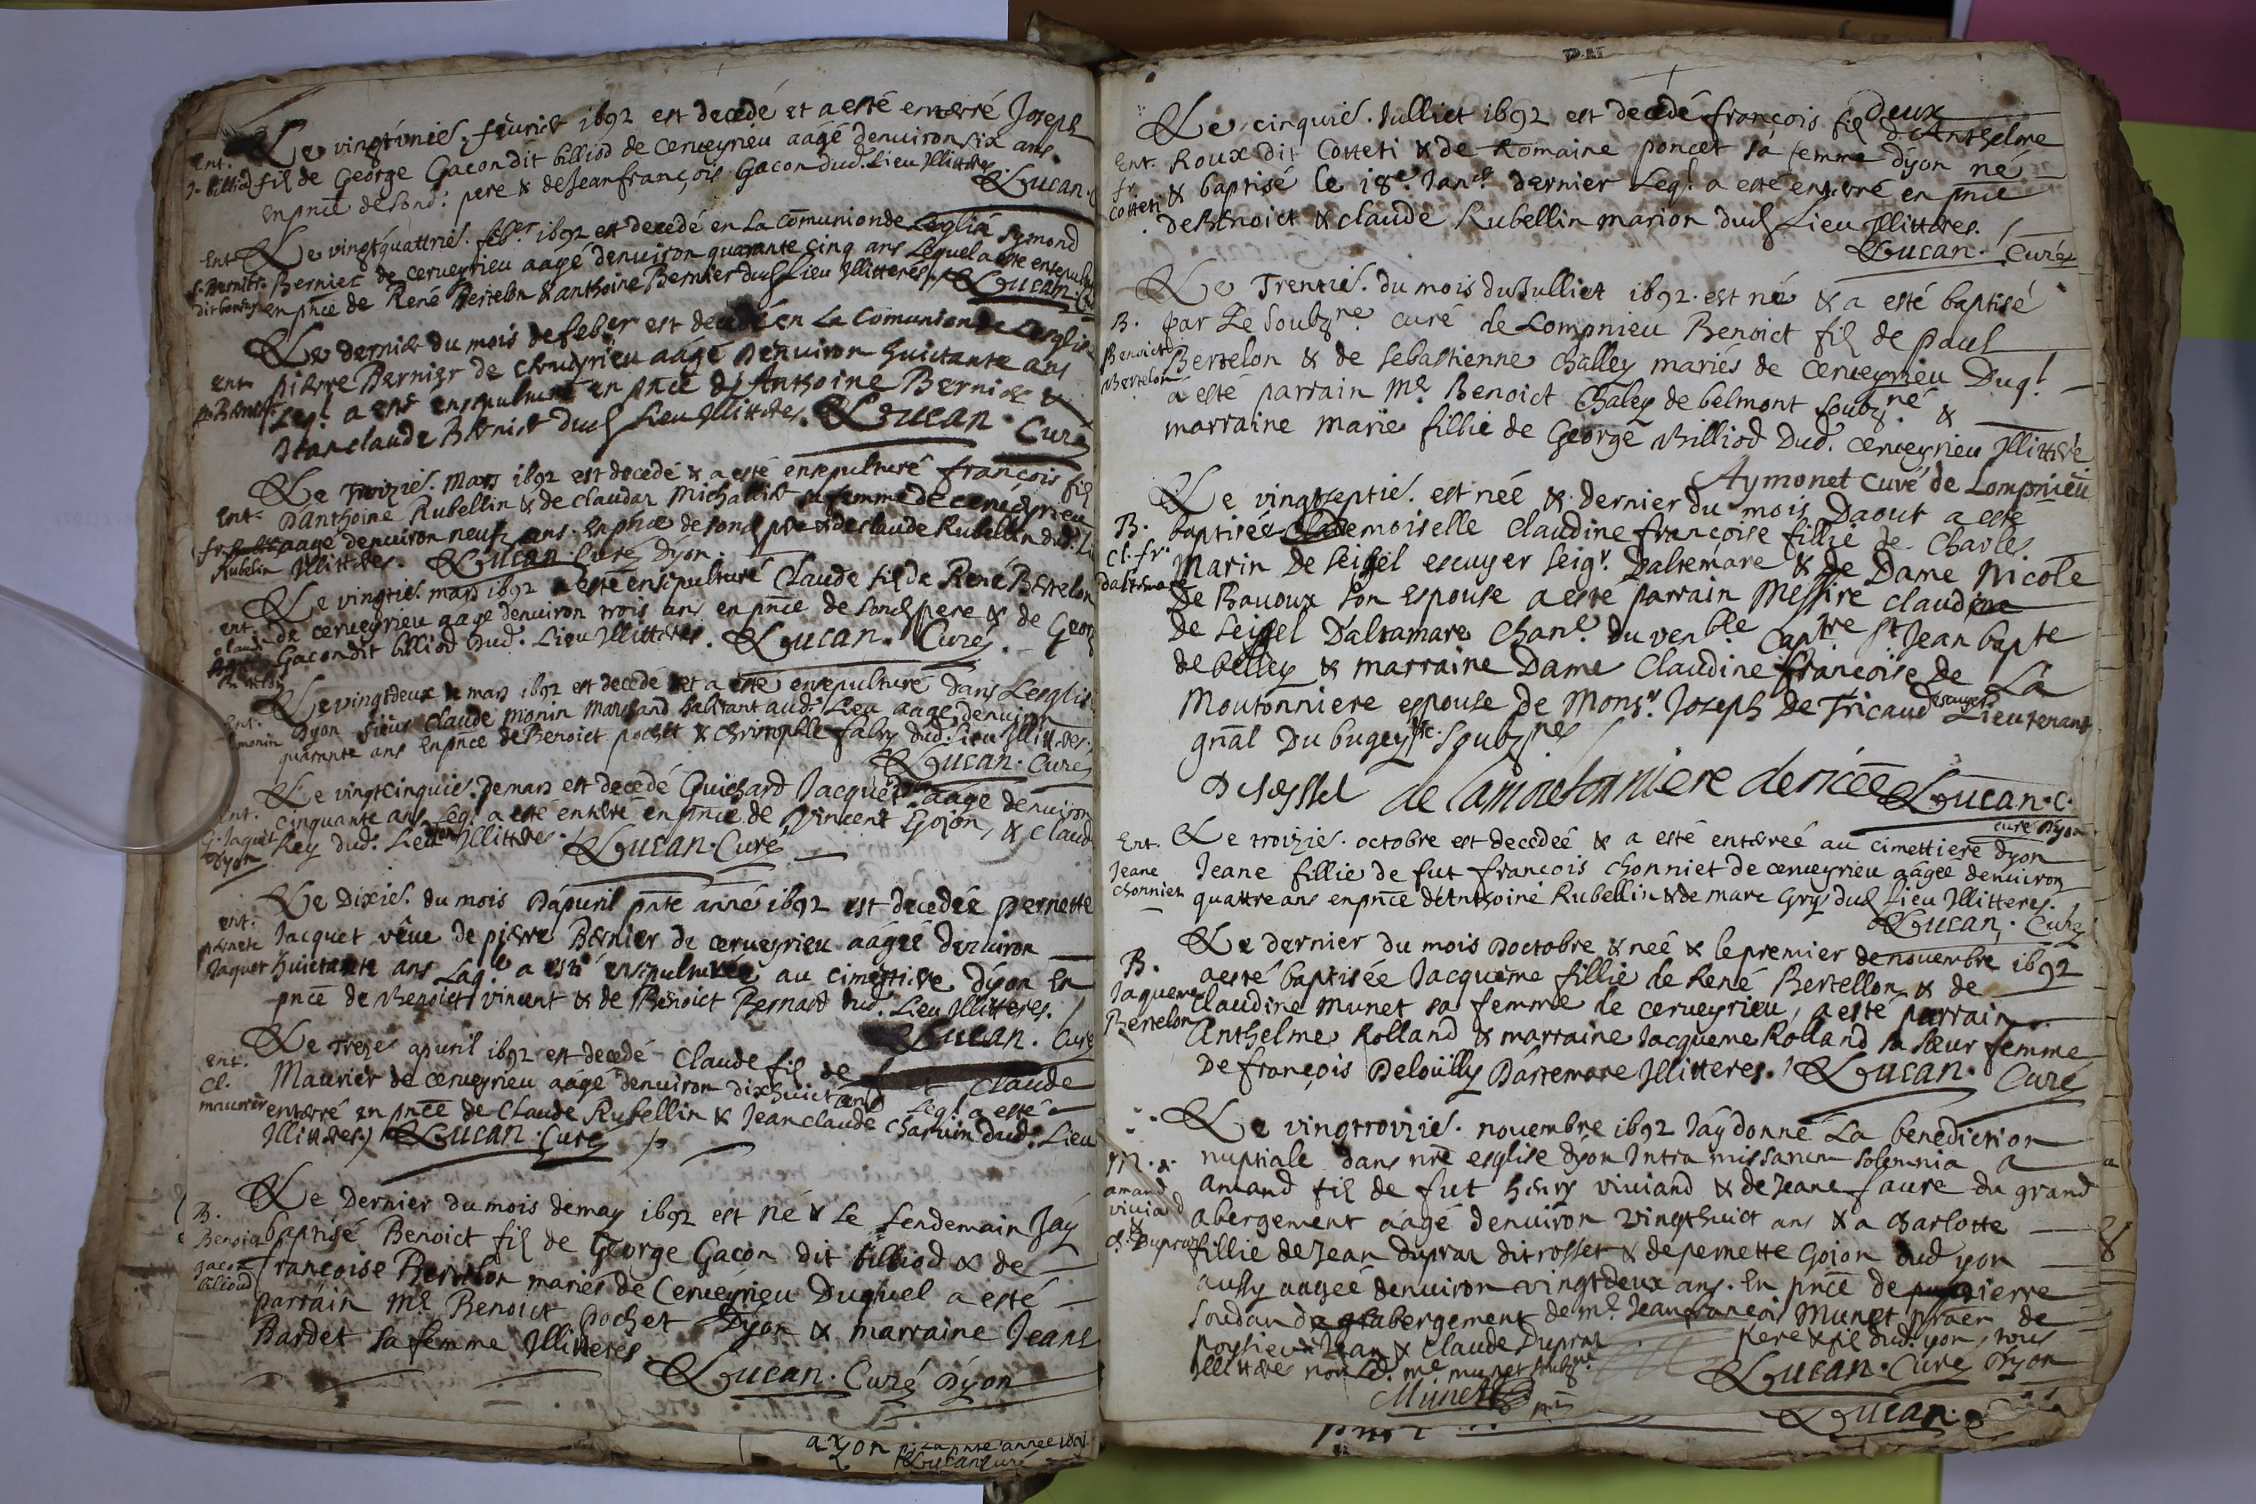 Le vingtunies. feuvrier 1692 est decedé et a esté enterré Joseph
Ent. J. billiod fil de George Gacon dit billiod de cerueyrieu aagé denuiron six ans
en pnce de sond: pere & de Jean françois Gacon dud. Lieu Jllitteres
Lucan. C
Le vingtquattries. feb.er 1692 est decedé en La comunion de Leglise Symond
Ent. Bernier de cerueyrieu aagé denuiron quarante cinq ans Lequel a este ensepult
en pnce de René Bertelon & anthoine Bernier dud Lieu Jllitterés / Lucan. Cu
Le dernier du mois de feb.er est decedé en La Comunion de Lesglise
Ent. pierre Bernier de cerueyrieu aagé Denuiron huictante ans
Leq.l a esté ensepulturé en pnce d'Anthoine Bernier &
Jeanclaude Bernier dud Lieu Jllitteres. Lucan. Curé
Le Troizies. Mars 1692 est decedé & a esté ensepulturé françois fil
Ent. D'anthoine Rubellin & de claudaz Michallet sa femme de cerueyrieu
fr. aagé denuiron neuf ans. En pnce de sond pere & de claude Rubellin dud. L
Rubelin Jllitteres. Lucan. Curé Dyon.
Le vingties. mars 1692 a esté ensepulturé Claude fil de René Bertelon
ent. De cerueyrieu aage denuiron trois ans en pnce de sond pere & de Georg
claude Gacon dit billiod Dud. Lieu Jllitteres. Lucan. Curé.
Le vingtdeux de mars 1692 est decedé et a esté ensepulturé Dans Lesglise
Ent. Dyon sieur Claude monin Marchand habitant aud. Lieu aagé denuiron
monin quarante ans En pnce de Benoict pochet & christophle fabry dud. Lieu Jllitteres.
Lucan. Curé
Le vingtcinquies. De mars est decedé Guichard Jacquet aagé denuiron
Ent. cinquante ans Leq.l a esté enterré en pnce de Vincent Gojon, & Claude
G. Jaquet Rey dud. Lieu Jllitteres. Lucan. Curé
Dyon
Le Dixies. du mois Dapuril pnte anné 1692 est decedée Pernette
ent. pernete Jacquet vêue de pierre Bernier de cerueyrieu aagée denuiron
Jaquet huictante ans Laq.le a esté ensepulturée au cimettiere Dyon En
pnce de Benoict vincent & de Benoict Bernard dud. Lieu Jllitteres.
Lucan. Curé
Le Treze apuril 1692 est decedé Claude fil de Claude
Ent. Cl. Maurier de cerueyrieu aagé denuiron dixhuict ans Leq.l a esté
maurier enterré en pnce de Claude Rubellin & Jeanclaude Charuin Dud. Lieu
Jllitteres / Lucan. Curé
Le Dernier du mois demay 1692 est né & Le Lendemain Jay
B. Benoict baptisé Benoict fil de George Gacon dit billiod & de
gacon billiod francoise Bertelon mariés de Cerueyrieu Duquel a esté
parrain M.e Benoict Pochet Dyon & marraine Jeane
Bardet sa femme Jllitterés
Lucan. Curé Dyon
a yon pnte année
Lucan Curé
Deux
Le cinquies. Julliet 1692 est decedé françois fil D'Anthelme
Ent. Roux dit Cotteti & de Romaine poncet sa femme dyon né
fr. cotteti & baptisé le 18e. Jan.er dernier Leq.l a esté enterré en pnce
de Benoict & claude Rubellin marion dud Lieu Jllitteres.
Lucan. Curé
Le Trenties. du mois du Julliet 1692. est né & a esté baptisé
B. par Le soubz.né curé de Lompnieu Benoict fil de paul
Benoict Bertelon Bertelon & de sebastienne Challey mariés de Cerueyrieu Duq.l
a esté parrain M.e Benoict Chaley de belmont soubz.né &
marraine Marie fillie de George Billiod Dud. cerueyrieu Jllitterée
Aymonet Curé de Lompnieu
Le vingtsepties. est née & dernier du mois Daout a esté
B. baptisée Dlademoiselle claudine françoise fillie de Charles
Cl. fr. Marin de seissel escuyer seig.r Daltemare & de Dame Nicole
Daltemare De Bauoux son espouse a esté parrain Messire claudine
de Seissel D'altamare Chan.e du ven.ble Capitre St. Jean bapte
de belley & marraine Dame Claudine françoise de La
Moutonniere espouse de Mons.r Joseph De Tricaud escuyer Lieutenant
gnal Du bugey &c. soubz.nés
De seissel de Lamoutonniere dericée Lucan. C.
curé Dyon
Ent. Le troizies. octobre est decedeé & a esté enterreé au cimettiere Dyon
Jeane Jeane fillie de fut francois Chonniet de cerueyrieu aagée denuiron
Chonnier quattre ans en pnce d'Anthoine Rubellin & de marc Gry dud Lieu Jllitteres.
Lucan. Curé
Le dernier du mois Doctobre & neé & le premier de nouembre 1692
B. a esté baptisée Jacqueme fillie de René Bertellon & de
Jaqueme Claudine Munet sa femme de cerueyrieu, a esté parrain
Bertelon Anthelme Rolland & marraine Jacqueme Rolland sa sœur femme
De françois Delouilly Dartemare Jllitteres. Lucan. Curé
Le vingtroizies. nouembre 1692 Jay donné La benediction
M. nuptiale dans nre esglise dyon Intra missarum solemnia a
amand viuiand amand fil de fut henry viuiand & de Jeane faure du grand
& abergement aagé denuiron vingthuict ans & a Charlotte
Ch. Dupraz fillie de Jean Dupraz dit rosset & de pernette Gojon dud yon
aussy aageé denuiron vingtdeux ans. En pnce de pierre
Soudan De grabergement de m.e Jeanfrancois Munet praer de
poysieu Jean & Claude Dupraz pere & fil dud. yon, tous
Jllitteres non Led. m.e munet soubz.né
Lucan. Curé Dyon
Munet
Lucan.